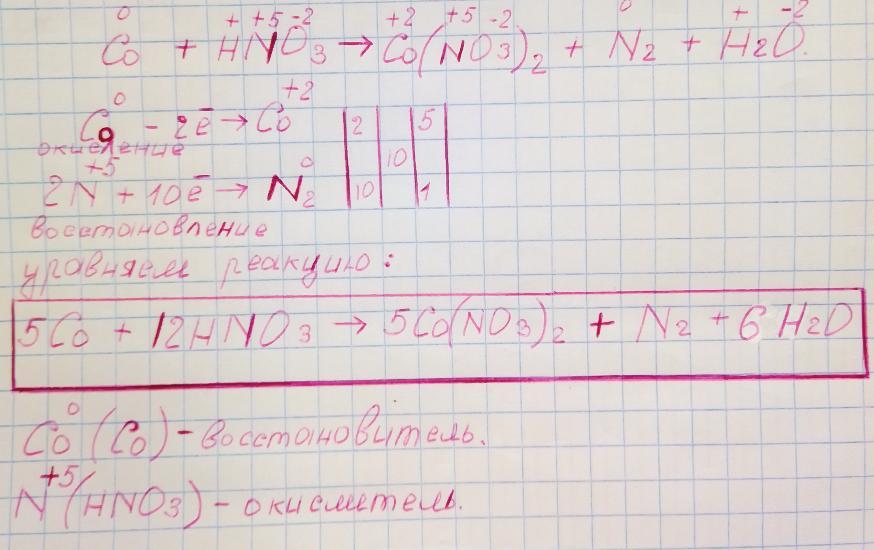 0 + +5 -2 +2 +5 -2 0 + -2
Co + HNO3 → Co(NO3)2 + N2 + H2O.
0 +2
Co - 2e̅ → Co | 2 | | 5 |
окисление | | 10 | |
+5 0
2N + 10e̅ → N2 | 10 | | 1 |
восстановление
уравняем реакцию:
5Co + 12HNO3 → 5Co(NO3)2 + N2 + 6H2O
0
Co (Co) - восстановитель.
+5
N (HNO3) - окислитель.